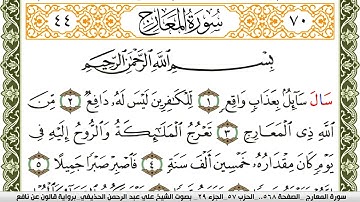 ٤٤ سُورَةُ الْمَعَارِجِ ٧٠
بِسْمِ اللَّهِ الرَّحْمَٰنِ الرَّحِيمِ
سَالَ سَآئِلُۢ بِعَذَابٖ وَاقِعٖ ١ لِّلْكَٰفِرِينَ لَيْسَ لَهُۥ دَافِعٞ ٢ مِّنَ
اَللَّهِ ذِي الْمَعَارِجِ ٣ تَعْرُجُ الْمَلَٰٓئِكَةُ وَالرُّوحُ إِلَيْهِ فِي
يَوْمٖ كَانَ مِقْدَارُهُۥ خَمْسِينَ أَلْفَ سَنَةٖ ٤ فَاصْبِرْ صَبْراٗ جَمِيلاً ٥
سورة المعارج .. الصفحة ٥٦٨.. الحزب ٥٧ .الجزء ٢٩ .. بصوت الشيخ علي عبد الرحمن الحذيفي .. برواية قالون عن نافع